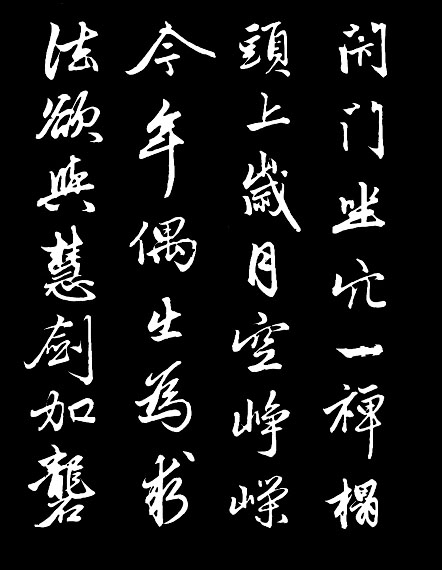 閉門坐穴一禪榻
頭上歲月空崢嶸
今年偶出為求
法欲與慧劍加礱